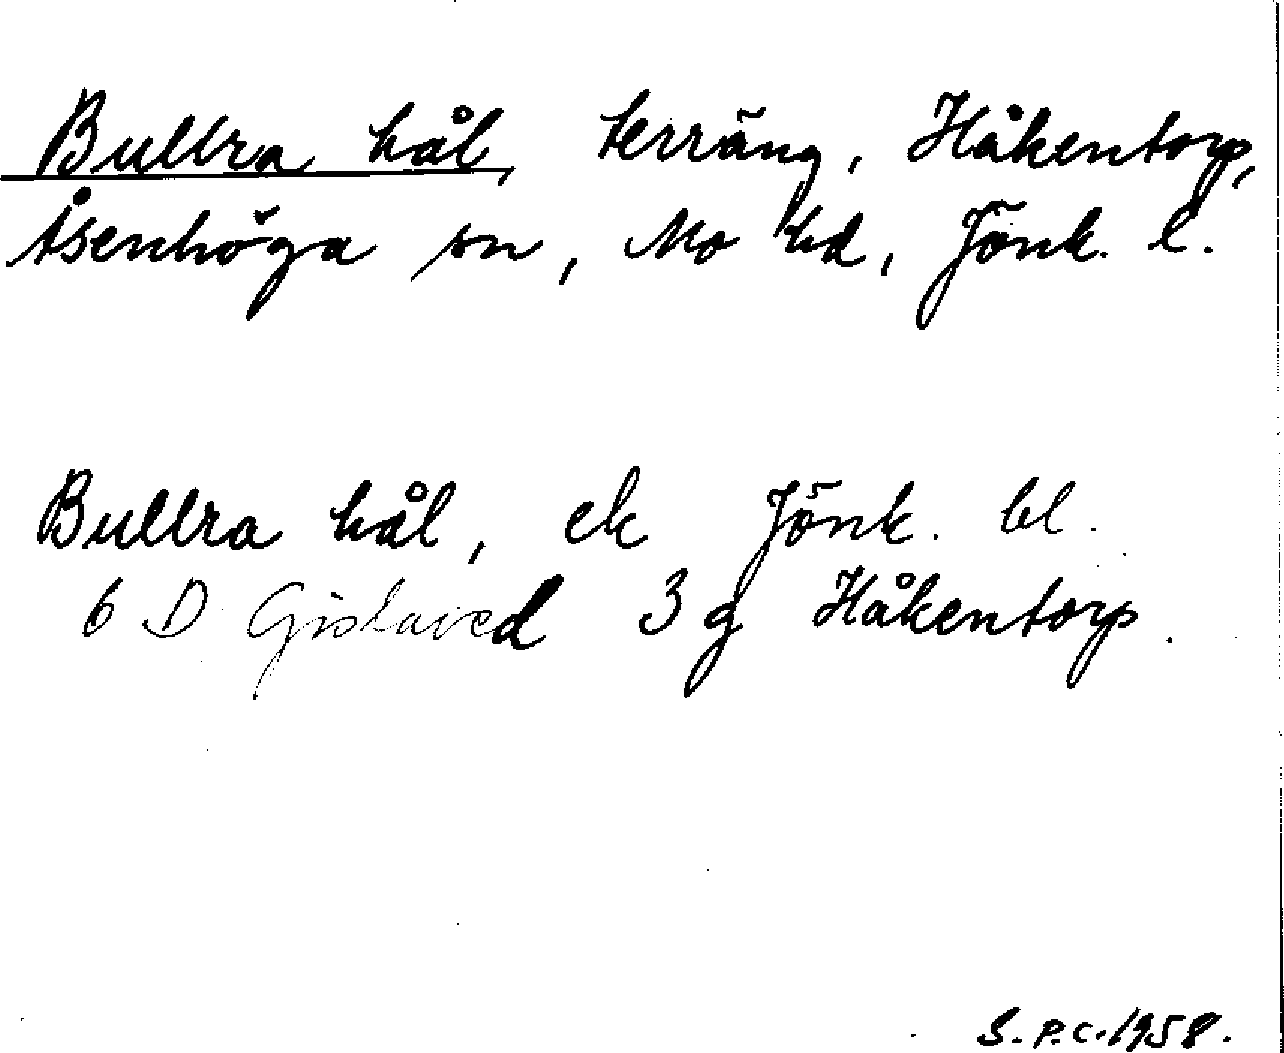 Bullra hål, terräng, Håkentorp,
Åsenhöga sn, Mo hd, Jönk. l.
Bullra hål, ek Jönk. bl.
6 D Gislaved 3 g Håkentorp.
S.P.C. 1958.